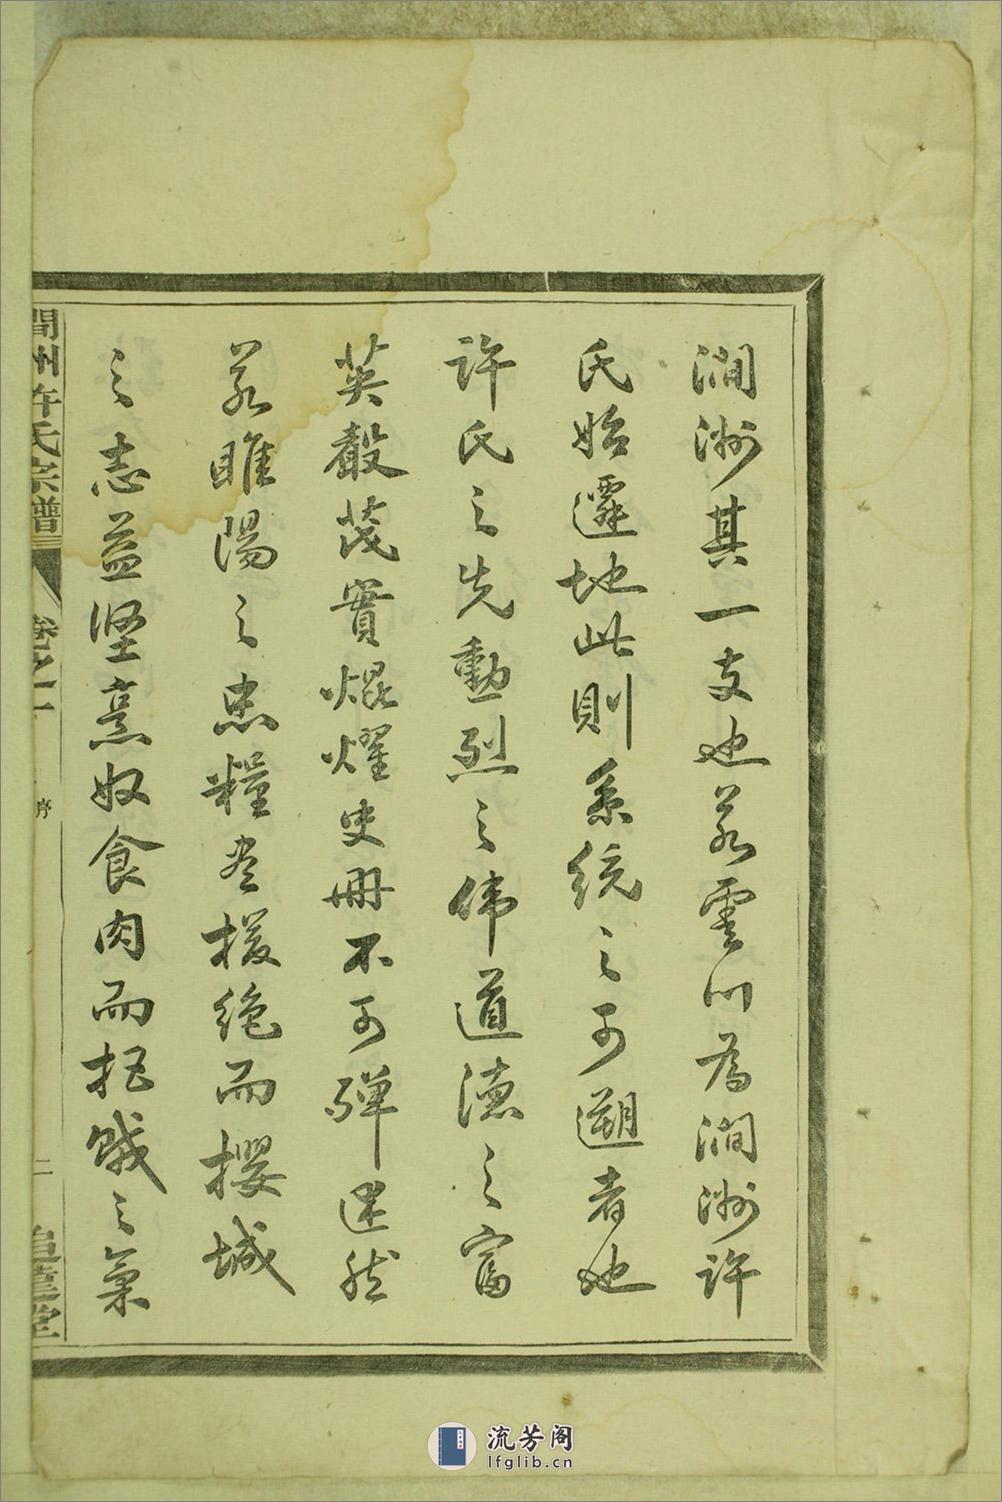 澗洲其一支也若雲川為澗洲許
氏始遷地此則系統之可遡者也
許氏之先勳烈之偉道德之富
英聲茂實焜燿史冊不可殫述然
若睢陽之忠糧盡援絕而攖城
之志益堅烹奴食肉而拒賊之氣
澗州許氏宗譜
卷之一
序
二
流芳阁
lfglib.cn